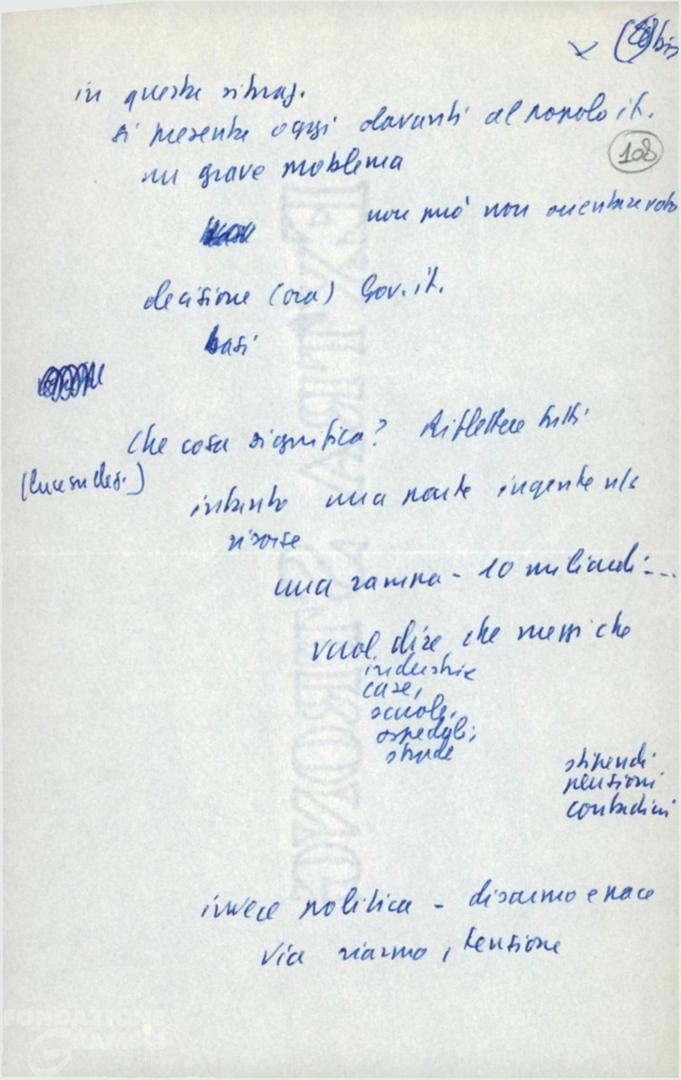 bis
in questa situaz.
si presenta oggi davanti al popolo it.
108
un grave problema
non può non orientare voto
decisione (ora) Gov. it.
basi
Che cosa significa? Riflettere tutti
intanto una parte ingente
risorse
una rampa - 10 miliardi...
vuol dire che
industrie
case,
scuole,
ospedali,
strade
stipendi
pensioni
contadini
invece politica - disarmo e pace
via riarmo, tensione
EXTRA STRONG
FONDAZIONE
GRAMSCI